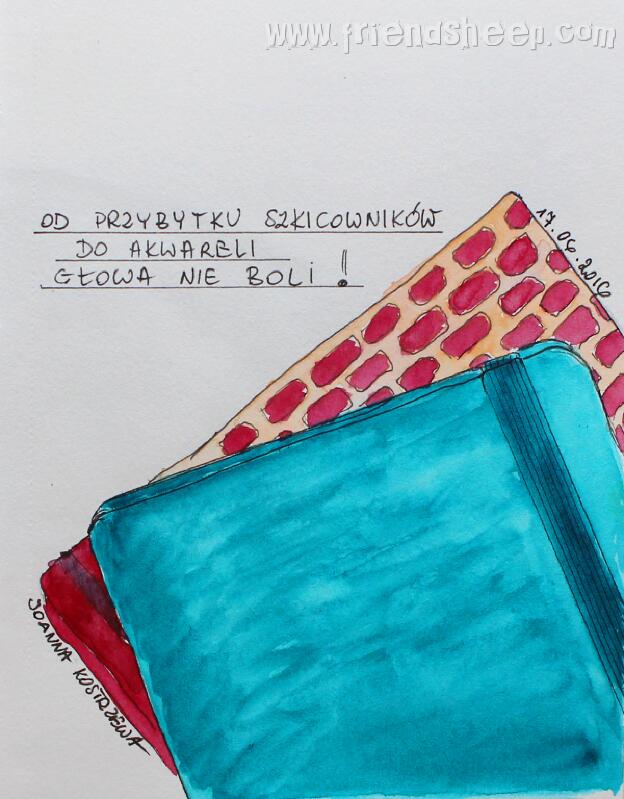 www.friendsheep.com
OD PRZYBYTKU SZKICOWNIKÓW
DO AKWARELI
GŁOWA NIE BOLI!
17.06.2016
JOANNA KOSTRZEWA